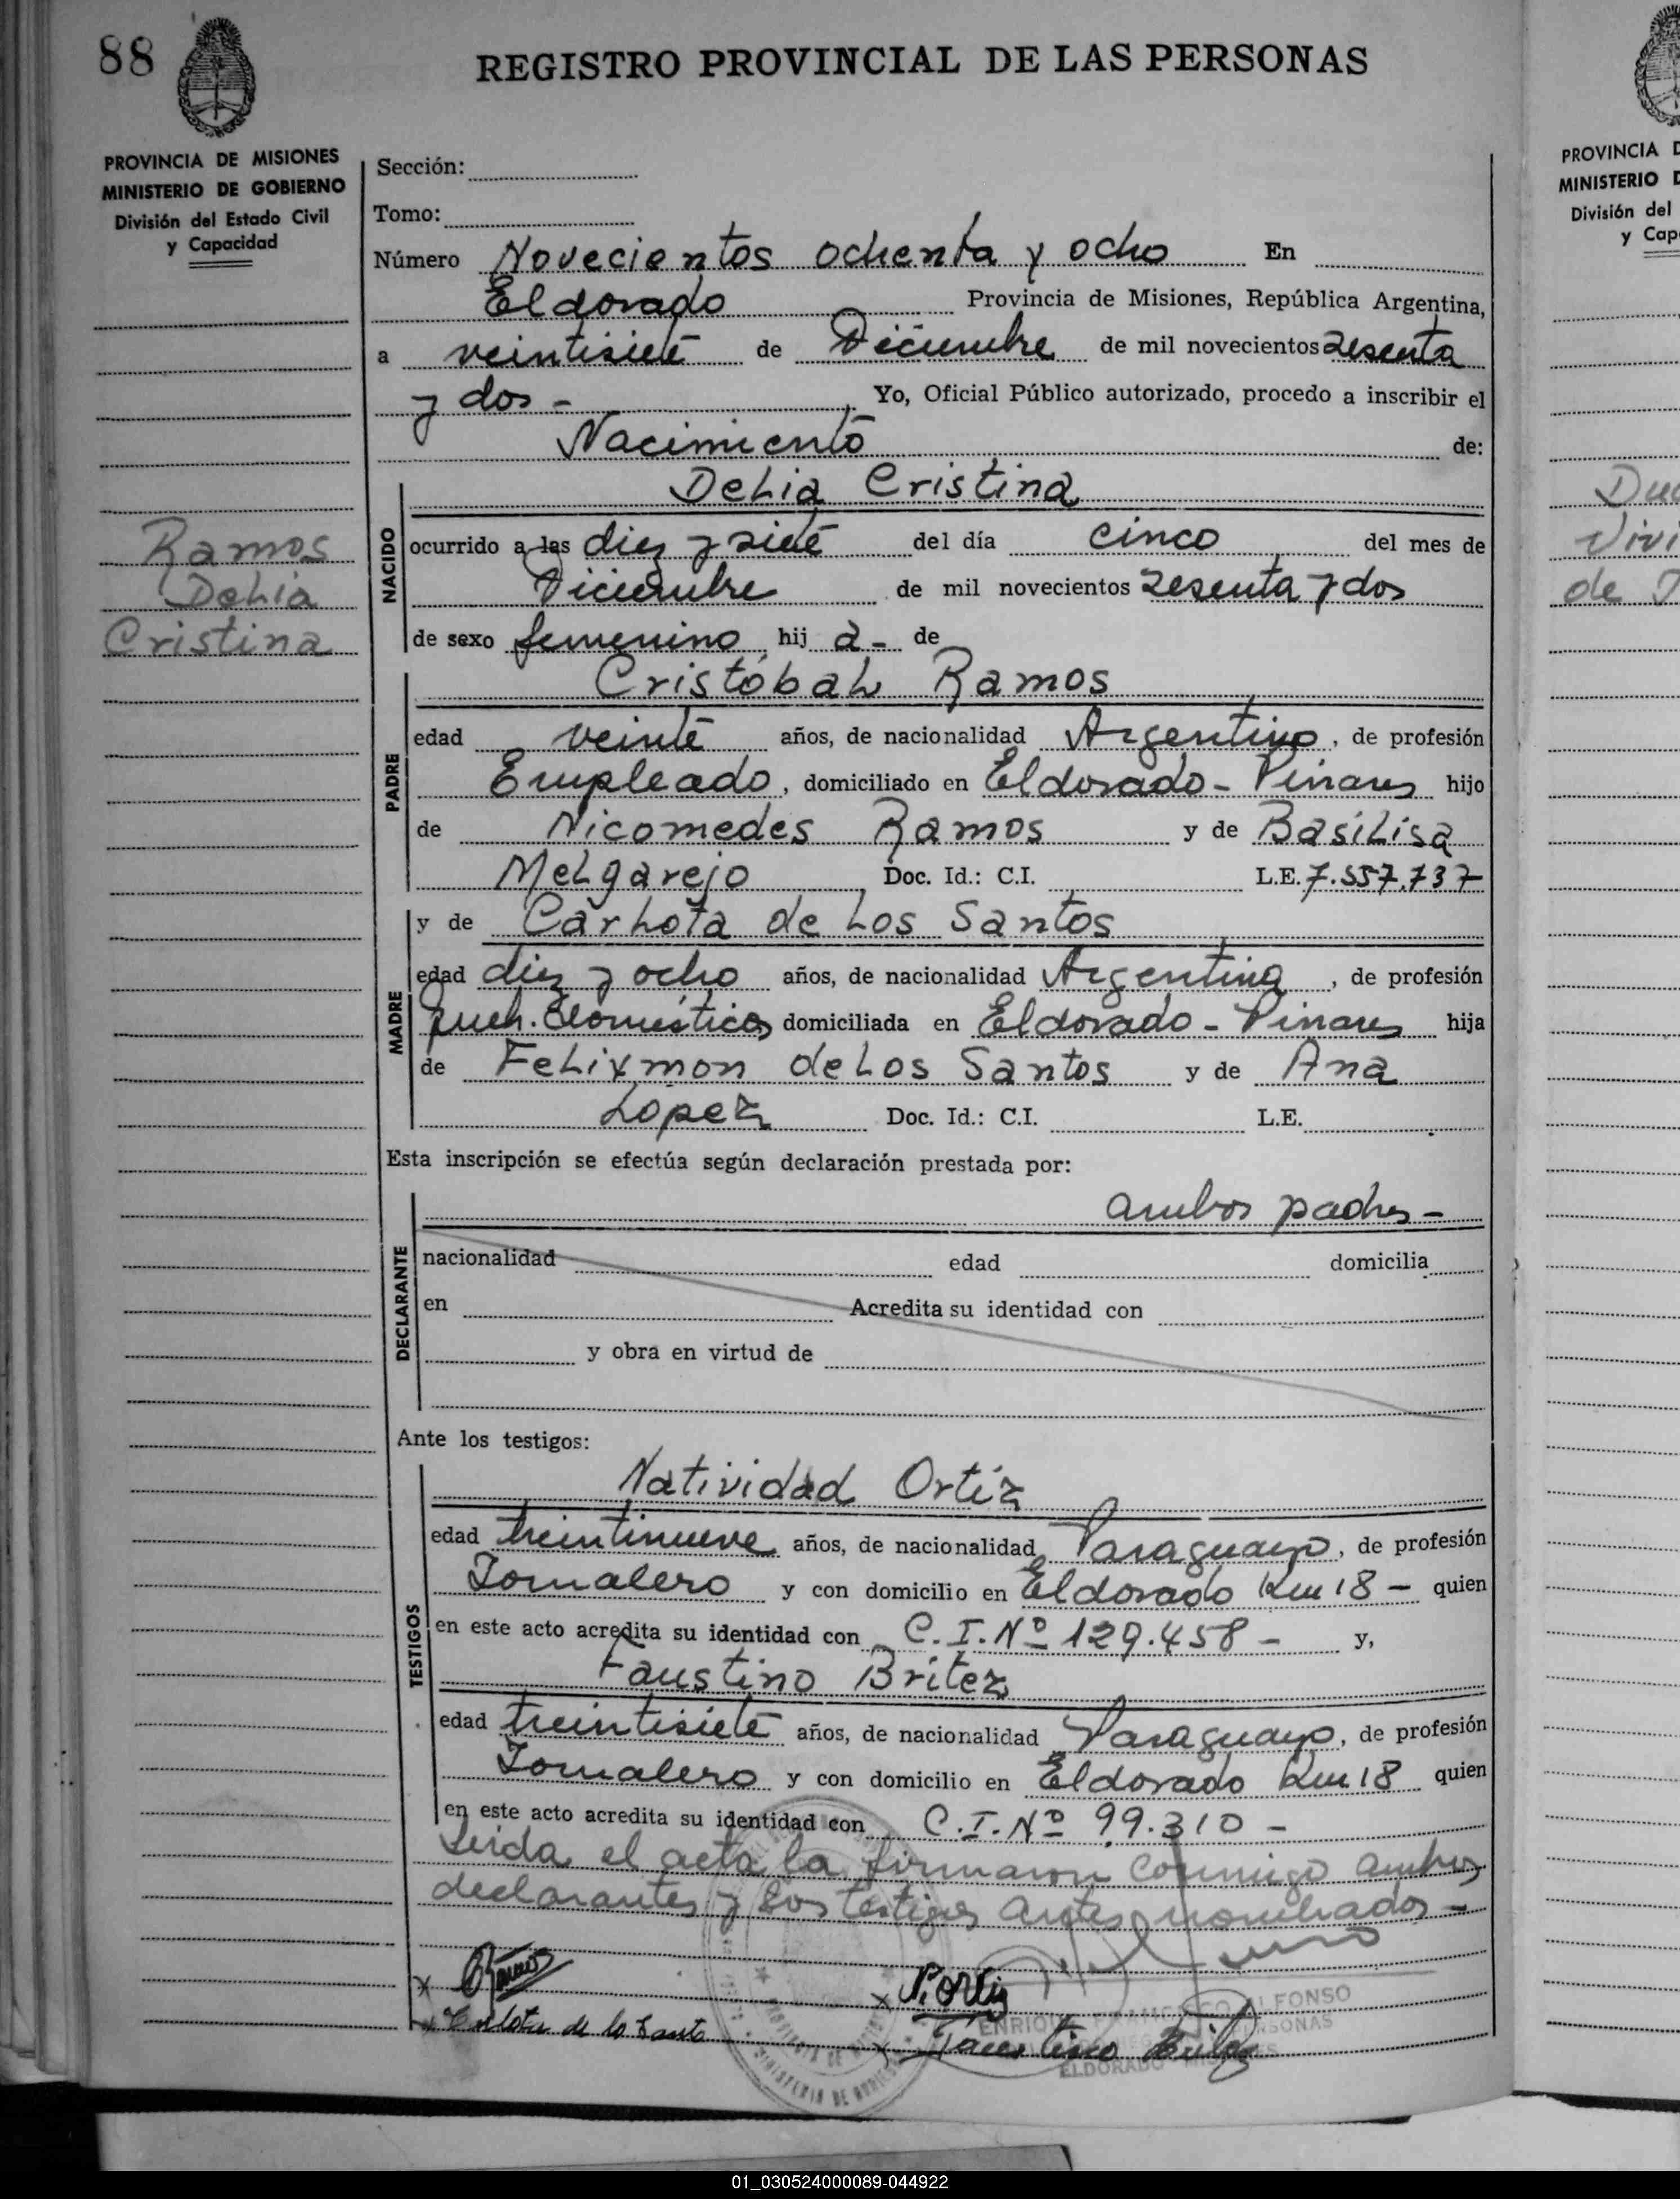 88
REGISTRO PROVINCIAL DE LAS PERSONAS
PROVINCIA DE MISIONES
MINISTERIO DE GOBIERNO
División del Estado Civil
y Capacidad
Ramos
Delia
Cristina
Sección:
Tomo:
Número Novecientos ochenta y ocho En
Eldorado Provincia de Misiones, República Argentina,
a veintisiete de Diciembre de mil novecientos sesenta
y dos - Yo, Oficial Público autorizado, procedo a inscribir el
Nacimiento de:
NACIDO
Delia Cristina
ocurrido a las diez y siete del día cinco del mes de
Diciembre de mil novecientos sesenta y dos
de sexo femenino hij a - de
PADRE
Cristóbal Ramos
edad veinte años, de nacionalidad Argentino, de profesión
Empleado, domiciliado en Eldorado - Pinares hijo
de Nicomedes Ramos y de Basilisa
Melgarejo Doc. Id.: C.I. L.E. 7.557.737
MADRE
y de Carlota de Los Santos
edad diez y ocho años, de nacionalidad Argentina, de profesión
Queh. Domésticos domiciliada en Eldorado - Pinares hija
de Felixmon de Los Santos y de Ana
Lopez Doc. Id.: C.I. L.E.
Esta inscripción se efectúa según declaración prestada por:
DECLARANTE
ambos padres -
nacionalidad edad domicilia
en Acredita su identidad con
y obra en virtud de
Ante los testigos:
TESTIGOS
Natividad Ortíz
edad treintinueve años, de nacionalidad Paraguayo, de profesión
Jornalero y con domicilio en Eldorado Km 18 - quien
en este acto acredita su identidad con C.I. Nº 129.458 - y,
Faustino Britez
edad treintisiete años, de nacionalidad Paraguayo, de profesión
Jornalero y con domicilio en Eldorado Km 18 quien
en este acto acredita su identidad con C.I. Nº 99.310 -
Leida el acta la firmaron conmigo ambos
declarantes y los testigos antes nombrados -
x Ramos
x N. Ortiz
ENRIQUE FRANCISCO ALFONSO
PERSONAS
ELDORADO MISIONES
x Carlota de lo Santo
x Faustino Britez
PROVINCIA D
MINISTERIO D
División del
y Cap
Due
Vivi
de
01_030524000089-044922